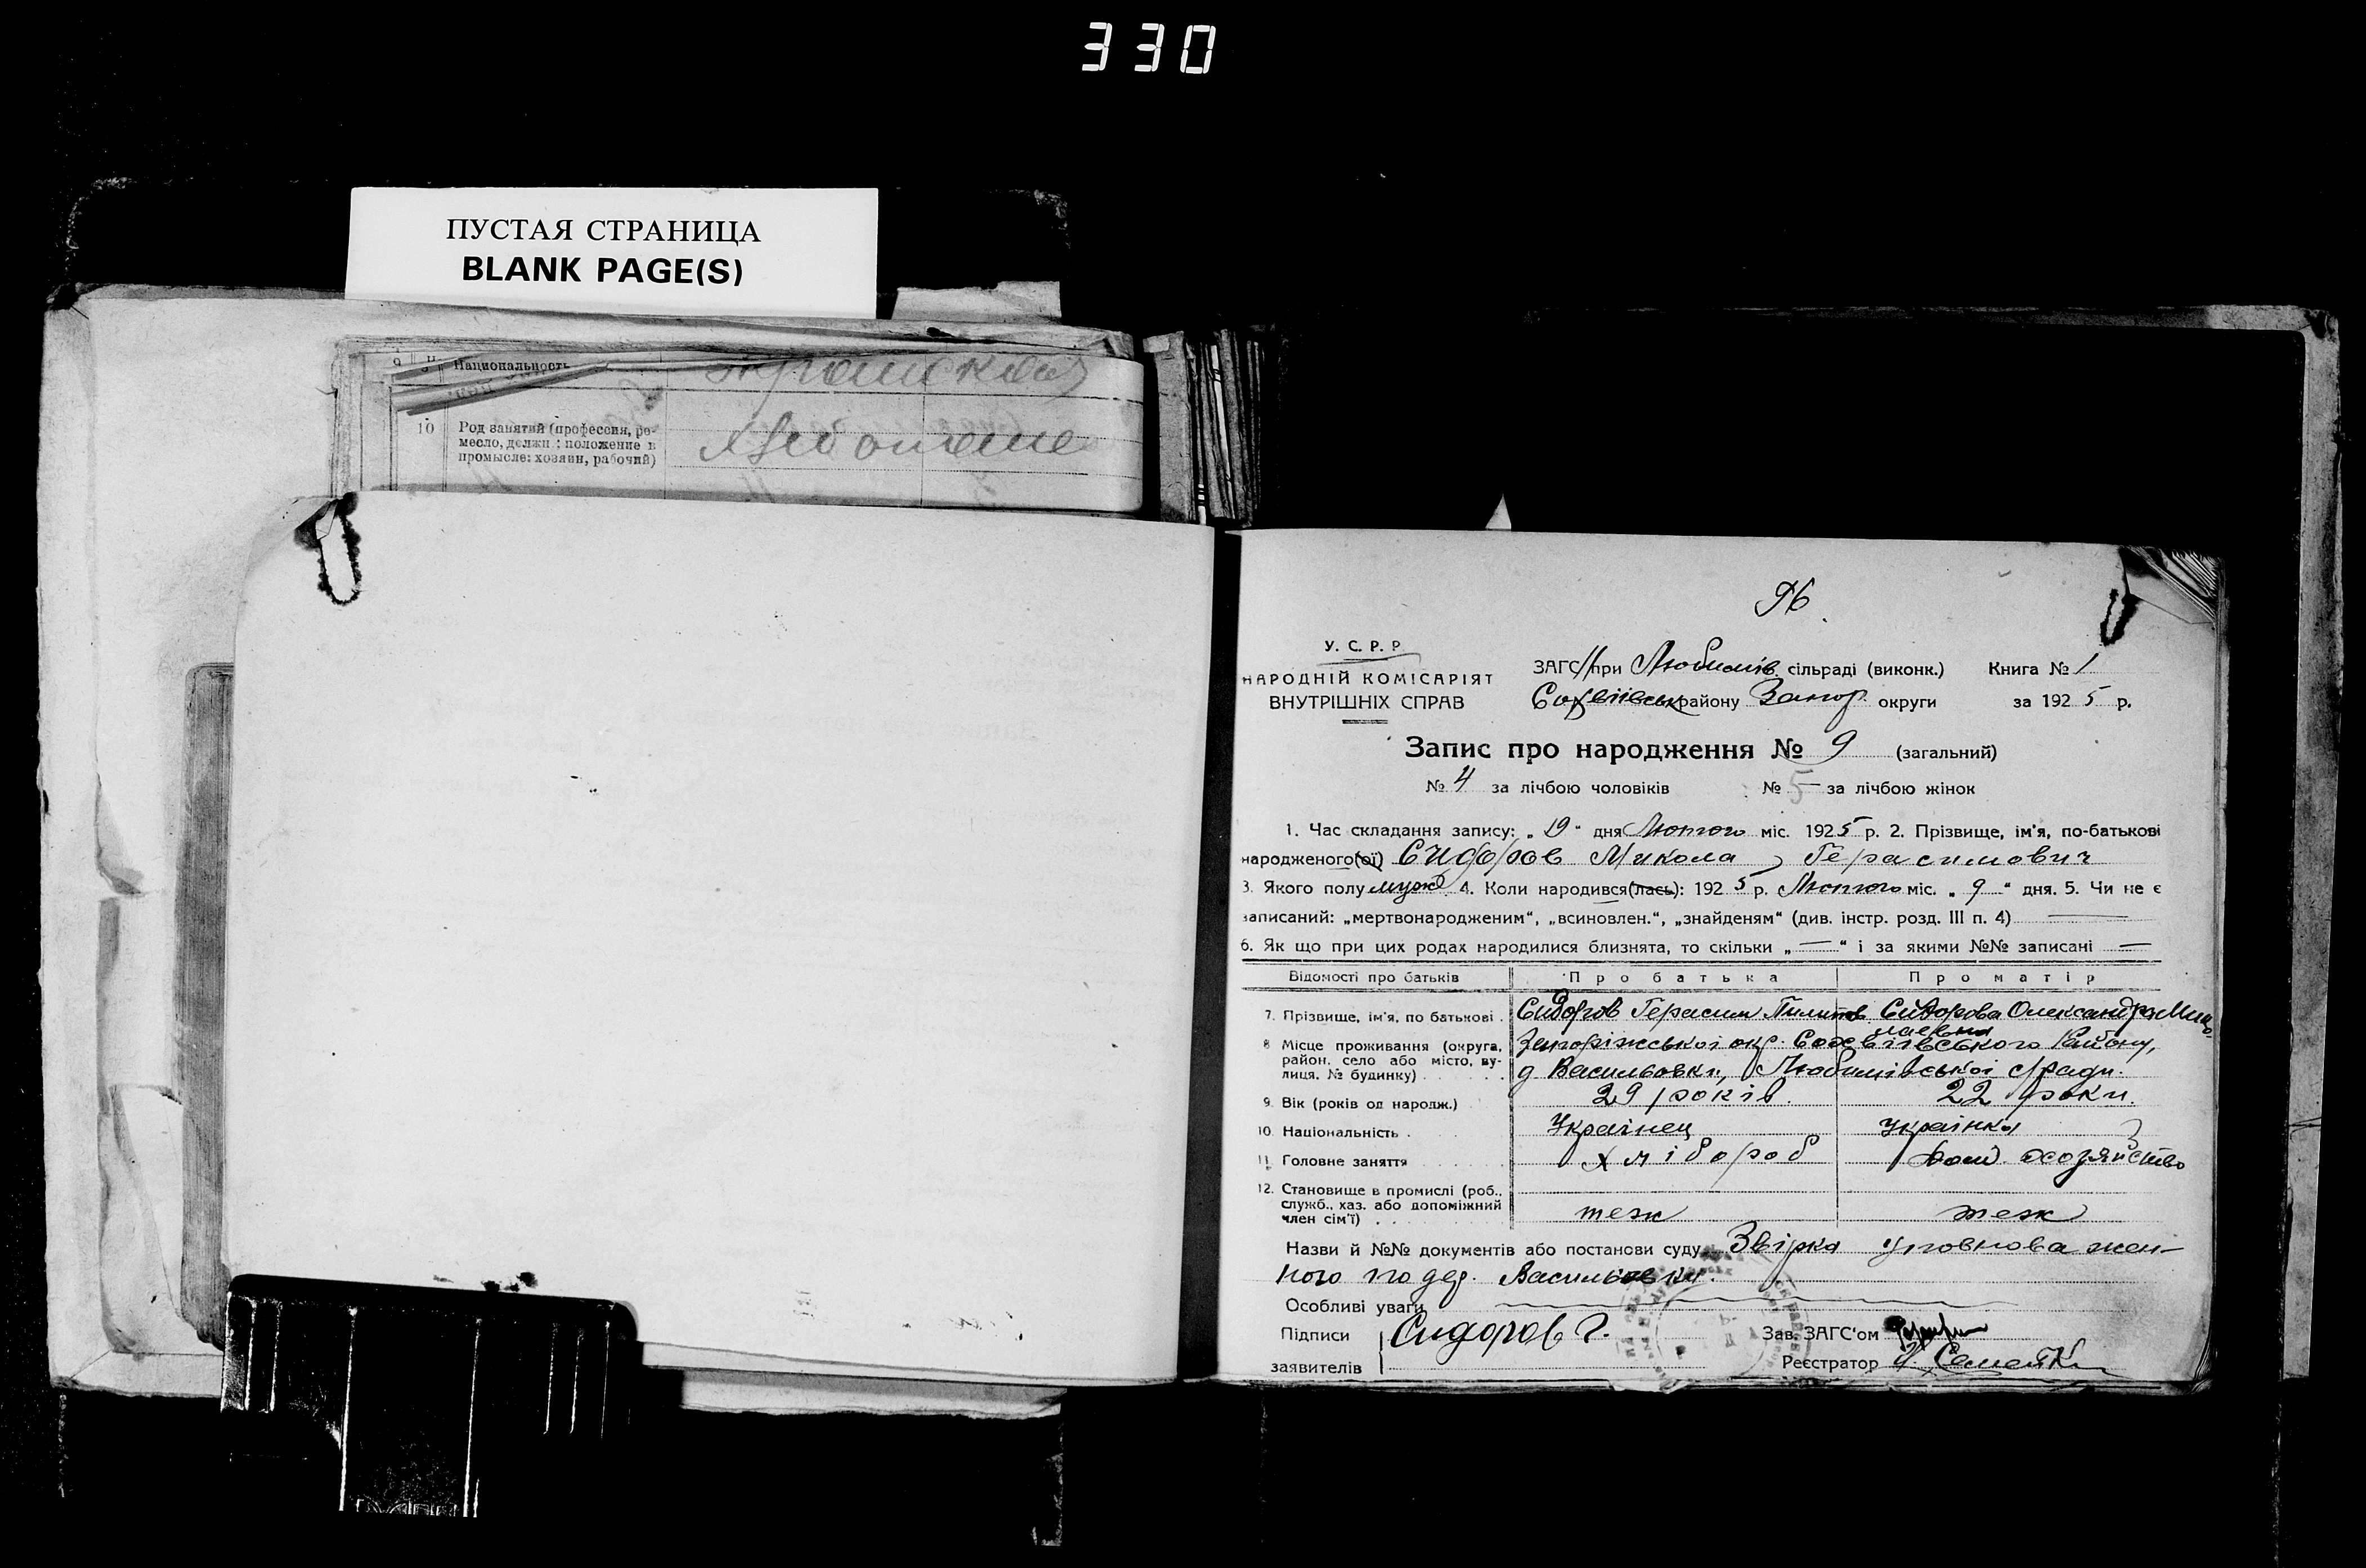 330
ПУСТАЯ СТРАНИЦА
BLANK PAGE(S)
Национальность
10 Род занятий (профессия, ре-
месло, должн.: положение в
промысле: хозяин, рабочий)
96
У. С. Р. Р
НАРОДНІЙ КОМІСАРІЯТ
ВНУТРІШНІХ СПРАВ
ЗАГС при Любимів. сільраді (виконк.) Книга № 1
Софвіївськ району Запор. округи за 1925 р.
Запис про народження № 9 (загальний)
№ 4 за лічбою чоловіків № — за лічбою жінок
1. Час складання запису: „19“ дня Лютого міс. 1925 р. 2. Прізвище, ім'я, по-батькові
народженого(ої) Сидоров Микола Герасимович
3. Якого полу муже 4. Коли народився(лась): 1925 р. Лютого міс. „9“ дня. 5. Чи не є
записаний: „мертвонародженим“, „всиновлен.“, „знайденям“ (див. інстр. розд. III п. 4) —
6. Як що при цих родах народилися близнята, то скільки „—“ і за якими №№ записані —
Відомості про батьків Про батька Про матір
7. Прізвище, ім'я, по батькові . Сидоров Герасим Сидорова Олександра
8 Місце проживання (округа, район, село або місто, ву-
лиця, № будинку) Запоріжської окр. Софвіївського Району,
д Васильовки, Любимівської с/ради.
9. Вік (років од народж.) 29 років. 22 роки.
10. Національність . Українец Українка
11. Головне заняття Хлібороб Дом. хозяйство
12. Становище в промислі (роб.,
служб., хаз. або допоміжний
член сім'ї) . теж теж
Назви й №№ документів або постанови суду Звірка уповноважен-
ного по дер. Васильовки.
Особливі уваги
Підписи Сидоров Г. Зав. ЗАГС'ом
заявителів Реєстратор